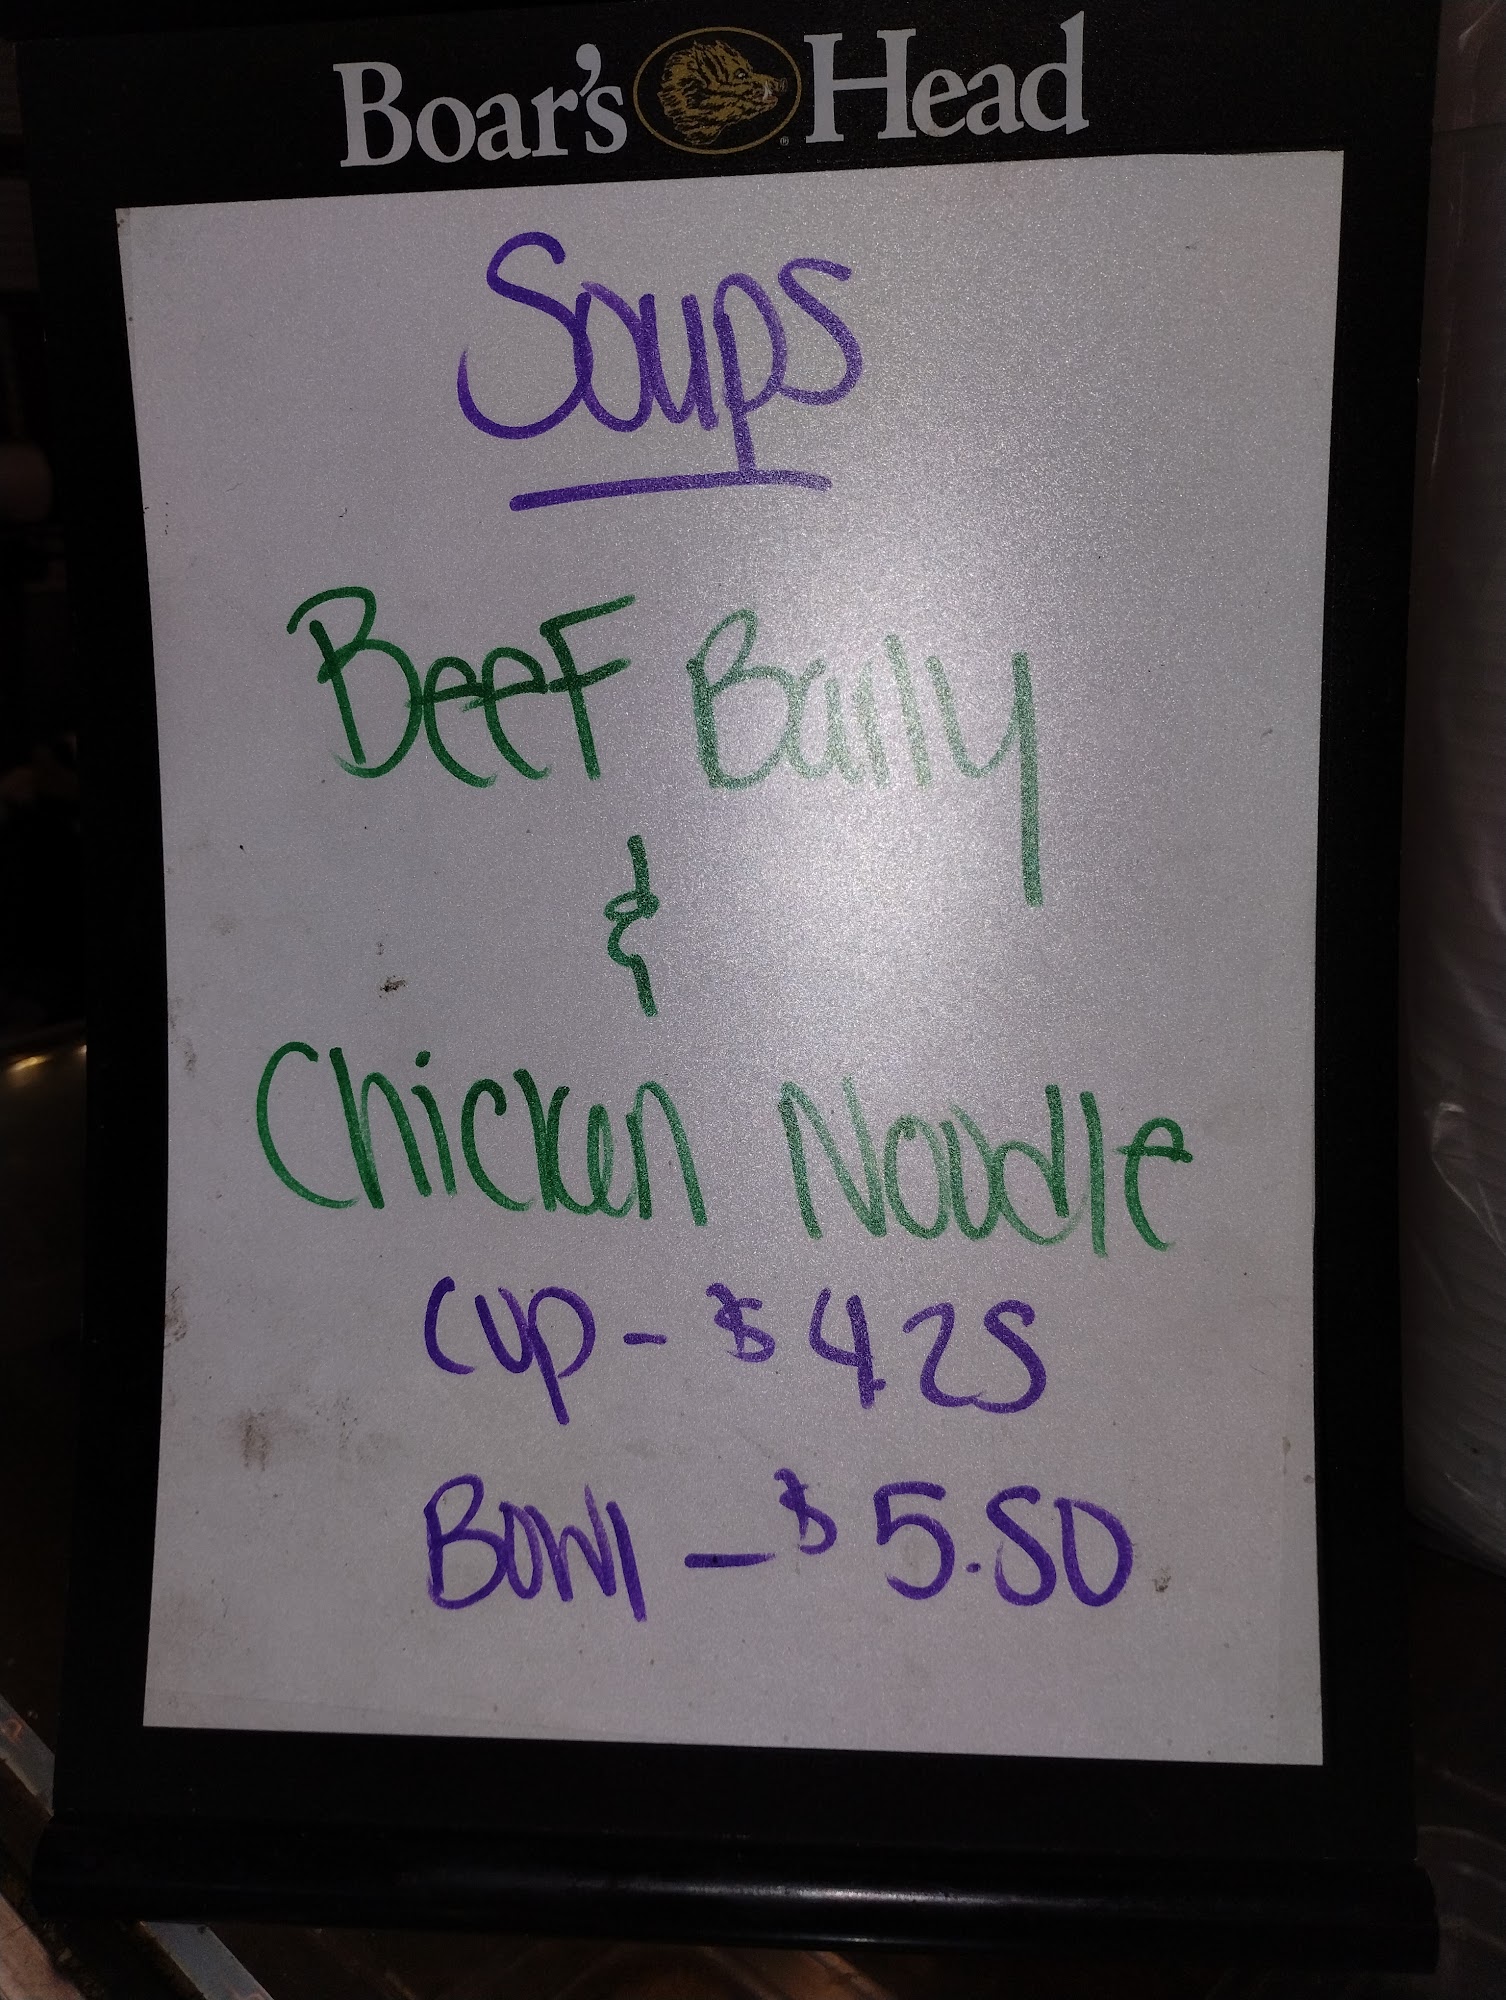 Boar's Head
Soups
Beef Barly
&
Chicken Noodle
Cup - $4.25
Bowl - $5.50